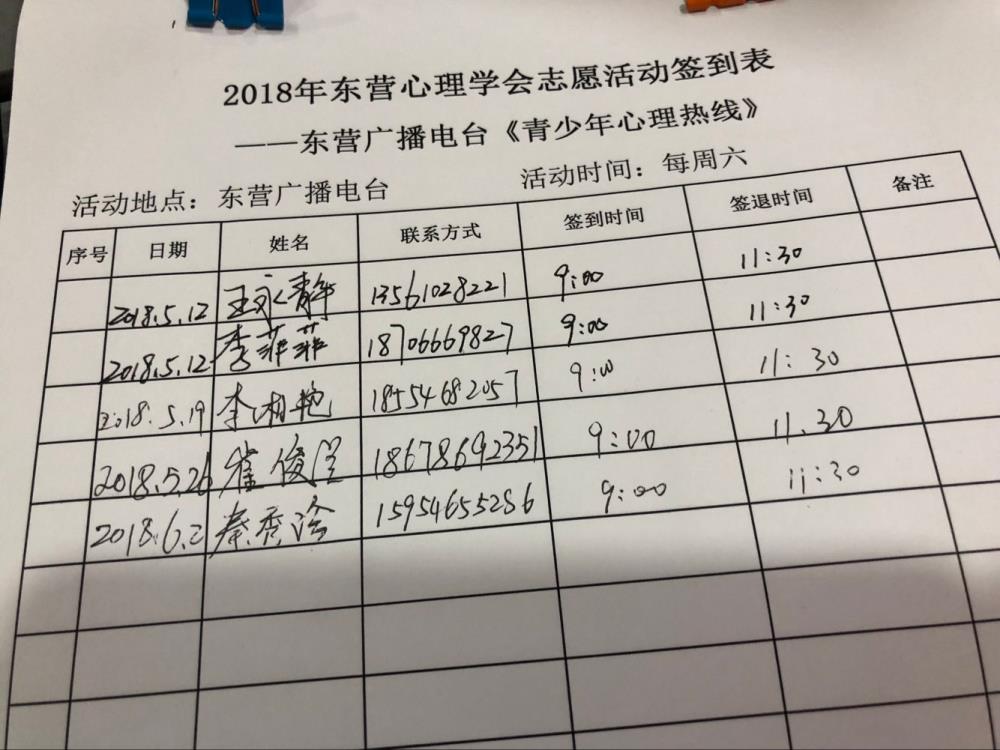 2018年东营心理学会志愿活动签到表
——东营广播电台《青少年心理热线》
活动地点：东营广播电台 活动时间：每周六
序号 日期 姓名 联系方式 签到时间 签退时间 备注
2018.5.12 王永青 13561028221 9:00 11:30
2018.5.12 李菲菲 18706669827 9:00 11:30
2018.5.19 李湘艳 18554682057 9:00 11:30
2018.5.26 崔俊 18678692351 9:00 11.30
2018.6.2 秦秀 15954655286 9:00 11:30